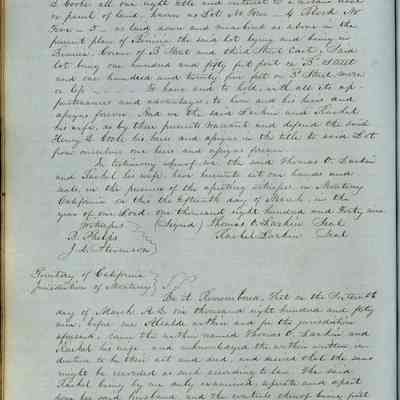 & Cooke all our right title and interest to a certain
or parcel of land, known as Lot No Four - 4 Block No
Five - 5 - as laid down and numbered as above in the
present plan of Benicia the said lot lying and being in
Benicia Corner of B Street and third Street East, Said
lot being one hundred and fifty feet port on B Street
and one hundred and twenty five feet on 3d Street more
or less - To have and to hold, with all its ap-
purtenances and advantages, to him and his heirs and
assigns forever. And we the said Larkin and Rachel
his wife, as by these presents warrant and defend the said
Henry & Cooke his heirs and assigns in the title to said Lot
from ourselves our heirs and assigns forever.
In testimony whereof, we the said Thomas O. Larkin
and Rachel his wife, have hereunto set our hands and
seals, in the presence of the aperting witnesses in Monterey
California on this the fifteenth day of March, in the
year of our Lord, one thousand eight hundred and forty nine.
Witnesses (Signed) Thomas O. Larkin Seal
B. Phelps Rachel Larkin Seal
J. D. Stevenson
Territory of California
Jurisdiction of Monterey SS
Be it Remembered, that on the Sixteenth
day of March A.D. one thousand eight hundred and fifty
nine, before me Alcalde within and for the jurisdiction
aforesaid, came the within named Thomas O. Larkin and
Rachel his wife and acknowledged the within written in-
denture to be their act and deed, and desired that the same
might be recorded as such according to law. The said
Rachel being by me duly examined, separate and apart
from her said husband and the contents thereof being first